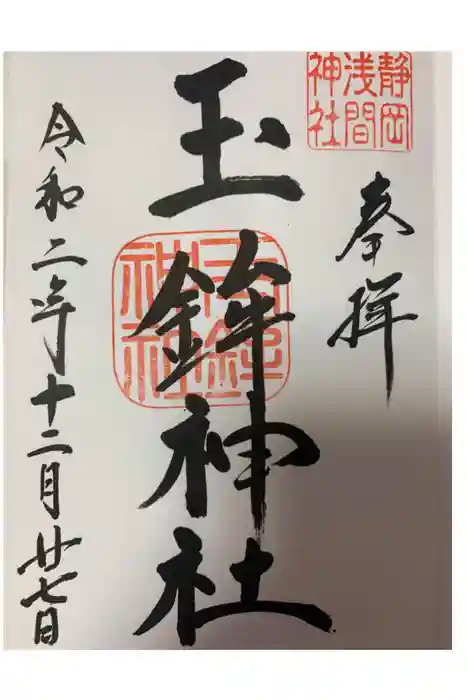 静岡
浅間
神社
奉拝
玉鉾神社
玉鉾
神社
令和二年十二月廿七日